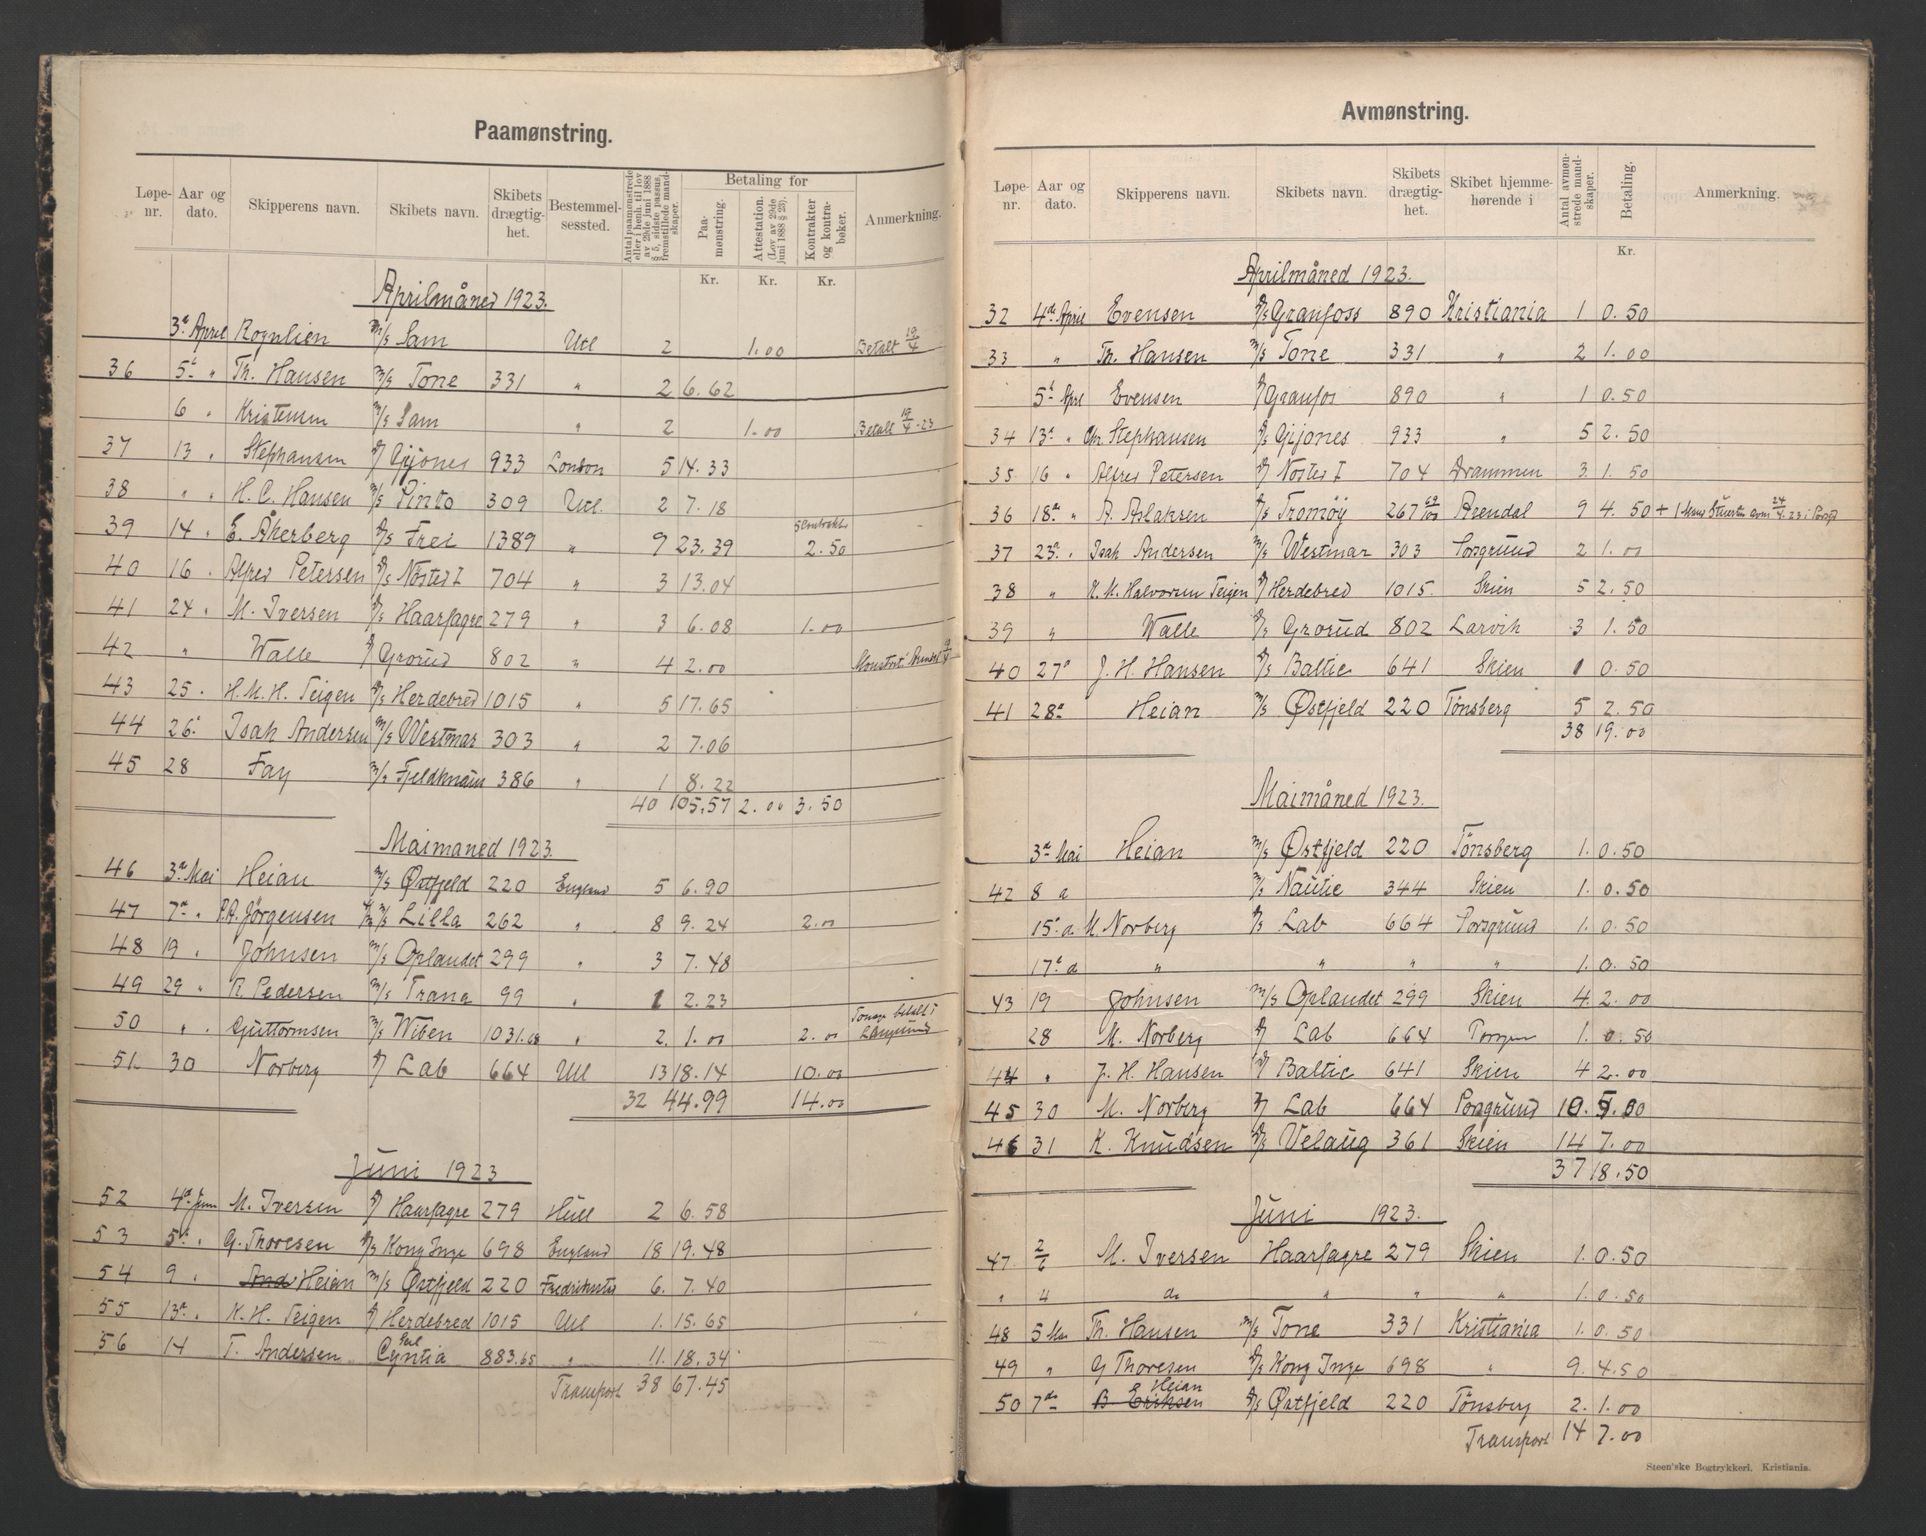 Paamønstring.
Løpe-nr. Aar og dato. Skipperens navn. Skibets navn. Skibets drægtig-het. Bestemmel-sessted. Antal paamønstrede eller i henh. til lov av 29de juni 1888 § 5, sidste passus, fremstillede mand-skaper. Betaling for Paa-mønstring. Attestation. (Lov av 29de juni 1888 § 23). Kontrakter og kontra-bøker. Anmerkning.
Kr. Kr. Kr.
Aprilmåned 1923.
3d April Rognlien M/s Sam Utl 2 1.00 Betalt 19/4
36 5t " Th. Hansen M/s Tone 331 " 2 6.62
6 " Kristensen M/s Sam " 2 1.00 Betalt 19/4-23
37 13 " Stephansen D/ Gijones 933 London 5 14.33
38 " " H. C. Hansen M/s Pinto 309 Utl. 2 7.18
39 14 " E. Åkerberg D/s Frei 1389 " 9 23.39 5 Kontrakter 2.50
40 16 " Alfred Petersen D/s Nosted I 704 " 3 13.04
41 24 " M. Iversen D/s Haarfagre 279 " 3 6.08 1.00
42 " Walle D/ Grorud 802 " 4 2.00
43 25 " H. M. H. Teigen D/s Herdebred 1015 " 5 17.65
44 26t Isak Andersen M/s Westmar 303 " 2 7.06
45 28 Fay M/s 386 " 1 8.22
40 105,57 2.00 3.50
Maimaned 1923.
46 3d Mai Heian M/s Østfjeld 220 England 5 6.90
47 7d " P.A. Jørgensen Lilla 262 " 8 9.24 2.00
48 19 " Johnsen M/s Oplandet 299 " 3 7.48
49 29 " R. Pedersen M/s Trana 99 " 1 2.23
50 " " Guttormsen M/s Wiben 1031.68 " 2. 1.00 2.00 Tonage betalt i Langesund
51. 30 Norberg D/ Lab 664 Utl 13 18.14 10.00
32 44.99 14.00
Juni 1923
52 4d Juni M. Iversen D/ Haarfagre 279 Hull 2 6.58
53 5t " G. Thoresen D/s Kong Inge 698 England 18 19.48
54 9 " Heian M/s Østfjeld 220 Fredrikstad 6. 7.40
55 13d " K. H. Teigen D/ Herdebred 1015 Utl 1. 15.65
56 14 T. Andersen Cyntia 883.65 " 11. 18.34
Transport 38 67.45
Avmønstring.
Løpe-nr. Aar og dato. Skipperens navn. Skibets navn. Skibets drægtig-het. Skibet hjemme-hørende i Antal avmøn-strede mand-skaper. Betaling. Anmerkning.
Kr.
Aprilmåned 1923.
32 4de April Evensen D/s Granfoss 890 Kristiania 1 0.50
33 " Th. Hansen M/s Tone 331 " 2 1.00
5t April Evensen D/ Granfos 890 " 1 0.50
34 13d " Chr Stephansen D/s Gijones 933 " 5 2.50
35 16 " Alfred Petersen D/ Nosted I 704 Drammen 3 1.50
36 18de " A. Aslaksen D/s Tromøy 267 69/100 Arendal 9 4.50 + 1 Mand Stuert avm 24/4.23 i Porsgr
37 23d " Isak Andersen M/s Westmar 303 Porsgrund 2 1.00
38 " H. M. Halvorsen Teigen D/ Herdebred 1015. Skien 5 2.50
39 " Walle D/s Grorud 802 Larvik 3 1.50
40 27d J. H. Hansen D/s Baltic 641 Skien 1 0.50
41 28d Heian M/s Østfjeld 220 Tønsberg 5 2.50
38 19.00
Maimåned 1923.
3d Mai Heian M/s Østfjeld 220 Tønsberg 1. 0.50
42 8 d M/s Nautic 344 Skien 1. 0.50
15. d M. Norberg D/s Lab 664 Porsgrund 1. 0.50
17d d " " " " 1. 0.50
43 19 Johnsen M/s Oplandet 299 Skien 4. 2.00
28 M. Norberg D/ Lab 664 1. 0.50
44 " J. H. Hansen D/ Baltic 641 Skien 4 2.00
45 30 M. Norberg D/ Lab 664 Porsgrund 10. 5.00
46 31 K. Knudsen D/s Velaug 361 Skien 14 7.00
37 18.50
Juni 1923.
47 2/6 M. Iversen Haarfagre 279 Skien 1. 0.50
" 4 do " " " 1. 0.50
48 5 Th. Hansen M/s Tone 331 Kristiania 1. 0.50
49 " G Thoresen D/s Kong Inge 698 " 9. 4.50
50 7de B Eriksen Heian D/s Østfjeld 220 Tønsberg 2. 1.00
Transport 14 7.00
Steen'ske Bogtrykkeri. Kristiania.